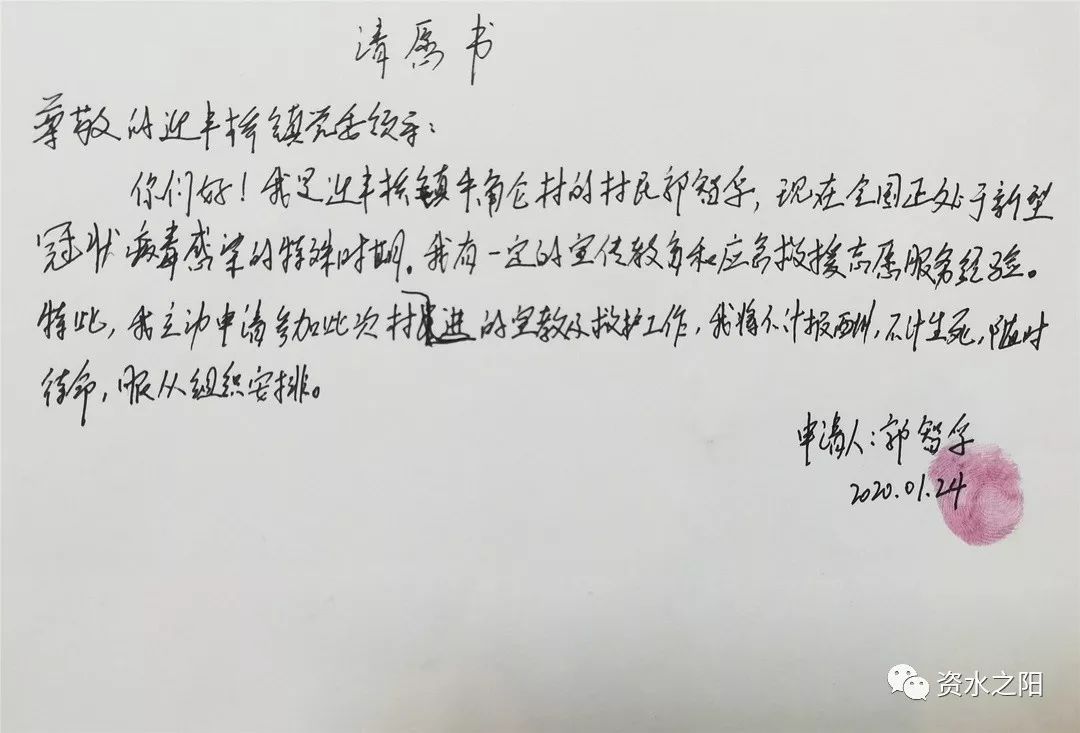 请愿书
尊敬的迎丰桥镇党委领导：
你们好！我是迎丰桥镇牛角仑村的村民郭智孚，现在全国正处于新型
冠状病毒感染的特殊时期。我有一定的宣传教育和应急救援志愿服务经验。
特此，我主动申请参加此次村进的宣教及救护工作，我将不计报酬，不计生死，随时
待命，服从组织安排。
申请人：郭智孚
2020.01.24
资水之阳